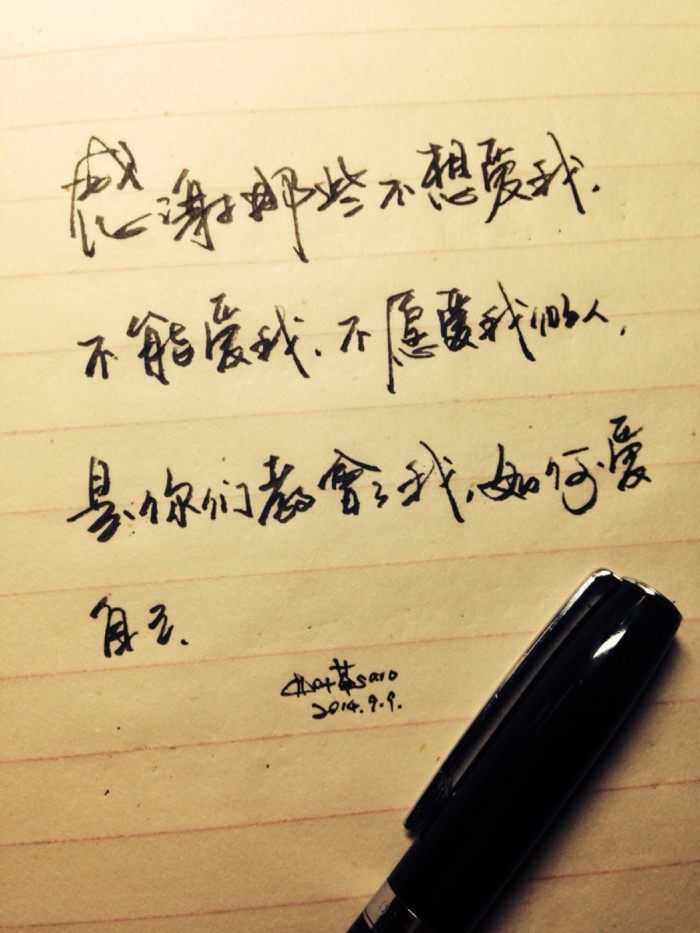 感谢那些不想爱我.
不能爱我.不愿爱我的人,
是你们教會了我,如何爱
自己.
2014.9.9.